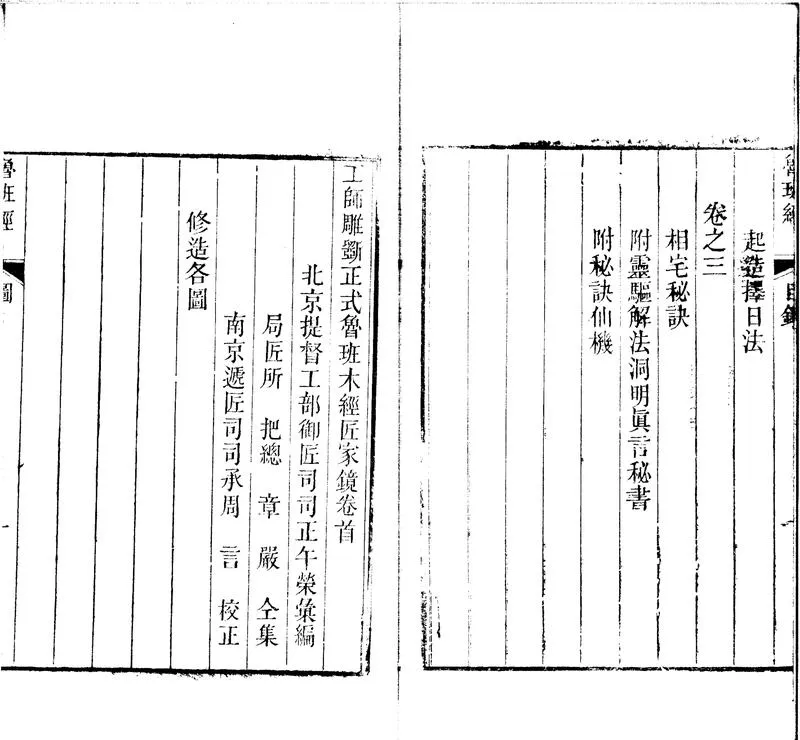 魯班經
目錄
起造擇日法
卷之三
相宅秘訣
附靈驅解法洞明眞言秘書
附秘訣仙機
工師雕斵正式魯班木經匠家鏡卷首
北京提督工部御匠司司正午榮彙編
局匠所把總章嚴仝集
南京遞匠司司承周言校正
修造各圖
魯班經
圖
一